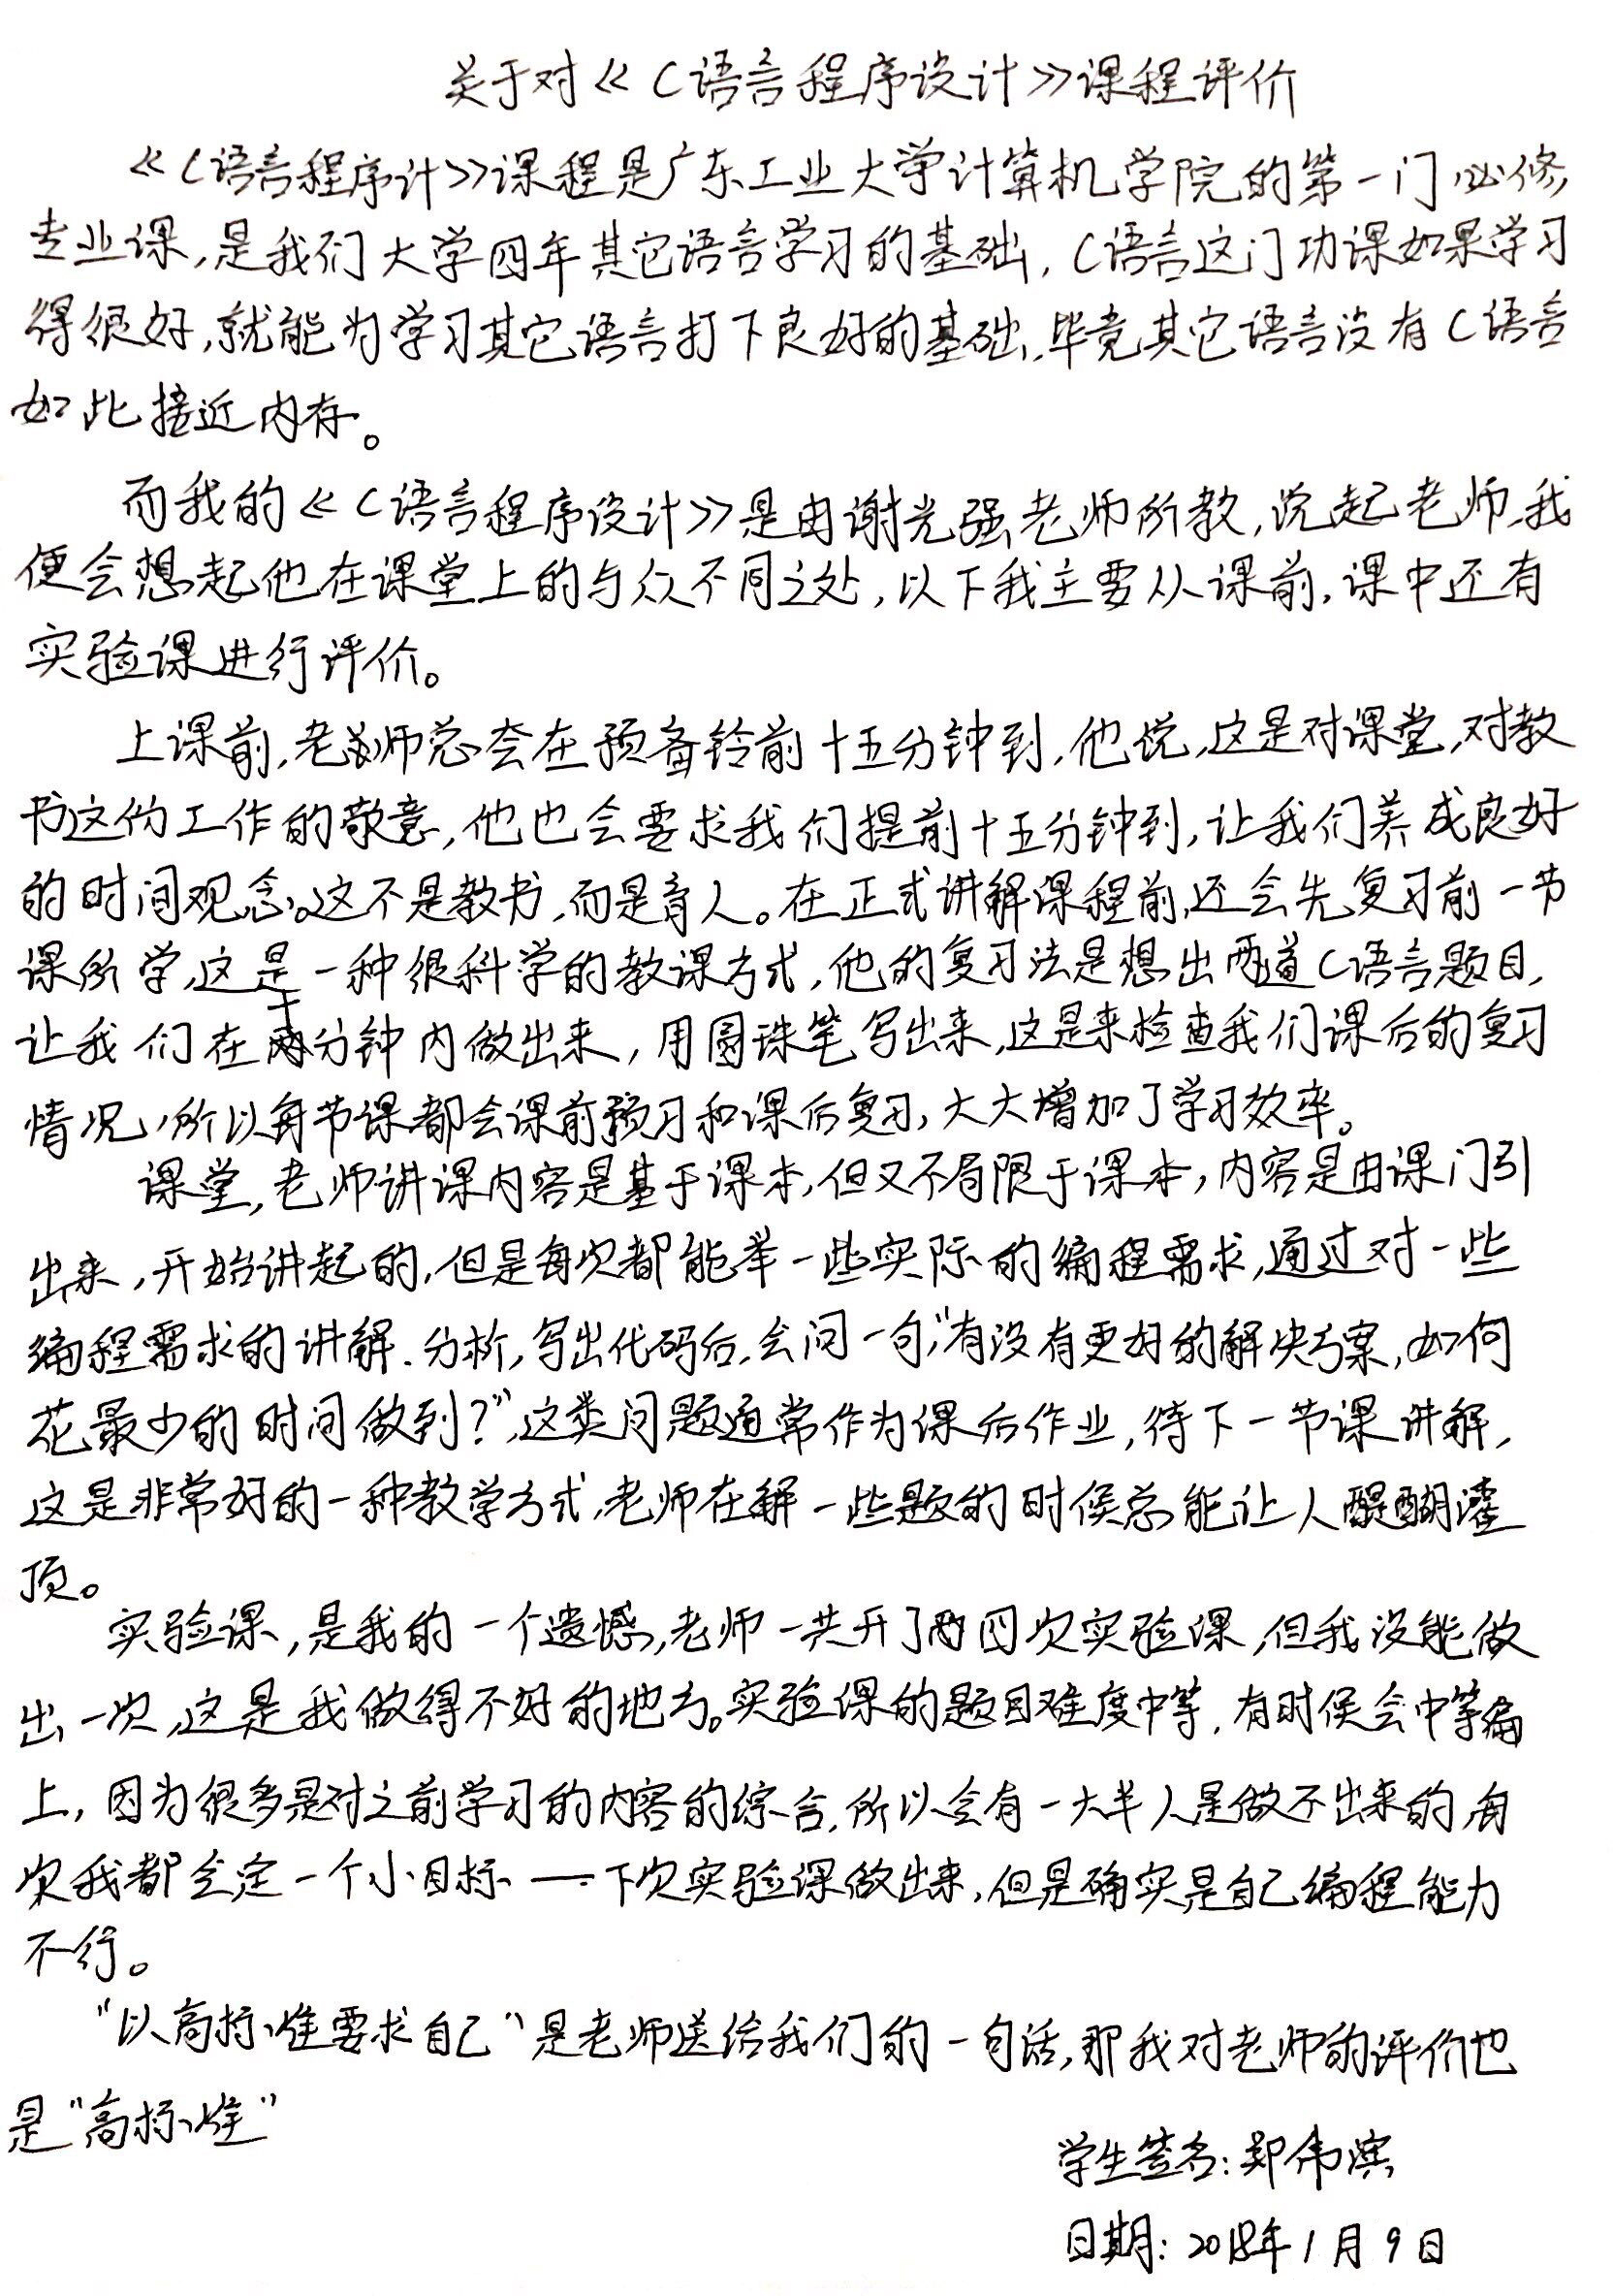 关于对《C语言程序设计》课程评价
《C语言程序计》课程是广东工业大学计算机学院的第一门必修
专业课,是我们大学四年其它语言学习的基础,C语言这门功课如果学习
得很好,就能为学习其它语言打下良好的基础,毕竟其它语言没有C语言
如此接近内存。
而我的《C语言程序设计》是由谢光强老师所教,说起老师,我
便会想起他在课堂上的与众不同之处,以下我主要从课前,课中还有
实验课进行评价。
上课前,老师总会在预备铃前十五分钟到,他说,这是对课堂,对教
书这份工作的敬意,他也会要求我们提前十五分钟到,让我们养成良好
的时间观念。这不是教书,而是育人。在正式讲解课程前,还会先复习前一节
课所学,这是一种很科学的教课方式,他的复习法是想出两道C语言题目,
让我们在十分钟内做出来,用圆珠笔写出来,这是来检查我们课后的复习
情况,所以每节课都会课前预习和课后复习,大大增加了学习效率。
课堂,老师讲课内容是基于课本,但又不局限于课本,内容是由课门引
出来,开始讲起的,但是每次都能举一些实际的编程需求,通过对一些
编程需求的讲解.分析,写出代码后,会问一句,“有没有更好的解决方案,如何
花最少的时间做到?”,这类问题通常作为课后作业,待下一节课讲解,
这是非常好的一种教学方式,老师在解一些题的时候总能让人醍醐灌
顶。
实验课,是我的一个遗憾,老师一共开了四次实验课,但我没能做
出一次,这是我做得不好的地方。实验课的题目难度中等,有时候会中等偏
上,因为很多是对之前学习的内容的综合,所以会有一大半人是做不出来的,每
次我都会定一个小目标——下次实验课做出来,但是确实是自己编程能力
不行。
“以高标准要求自己”是老师送给我们的一句话,那我对老师的评价也
是“高标准”
学生签名:郑伟滨
日期:2018年1月9日